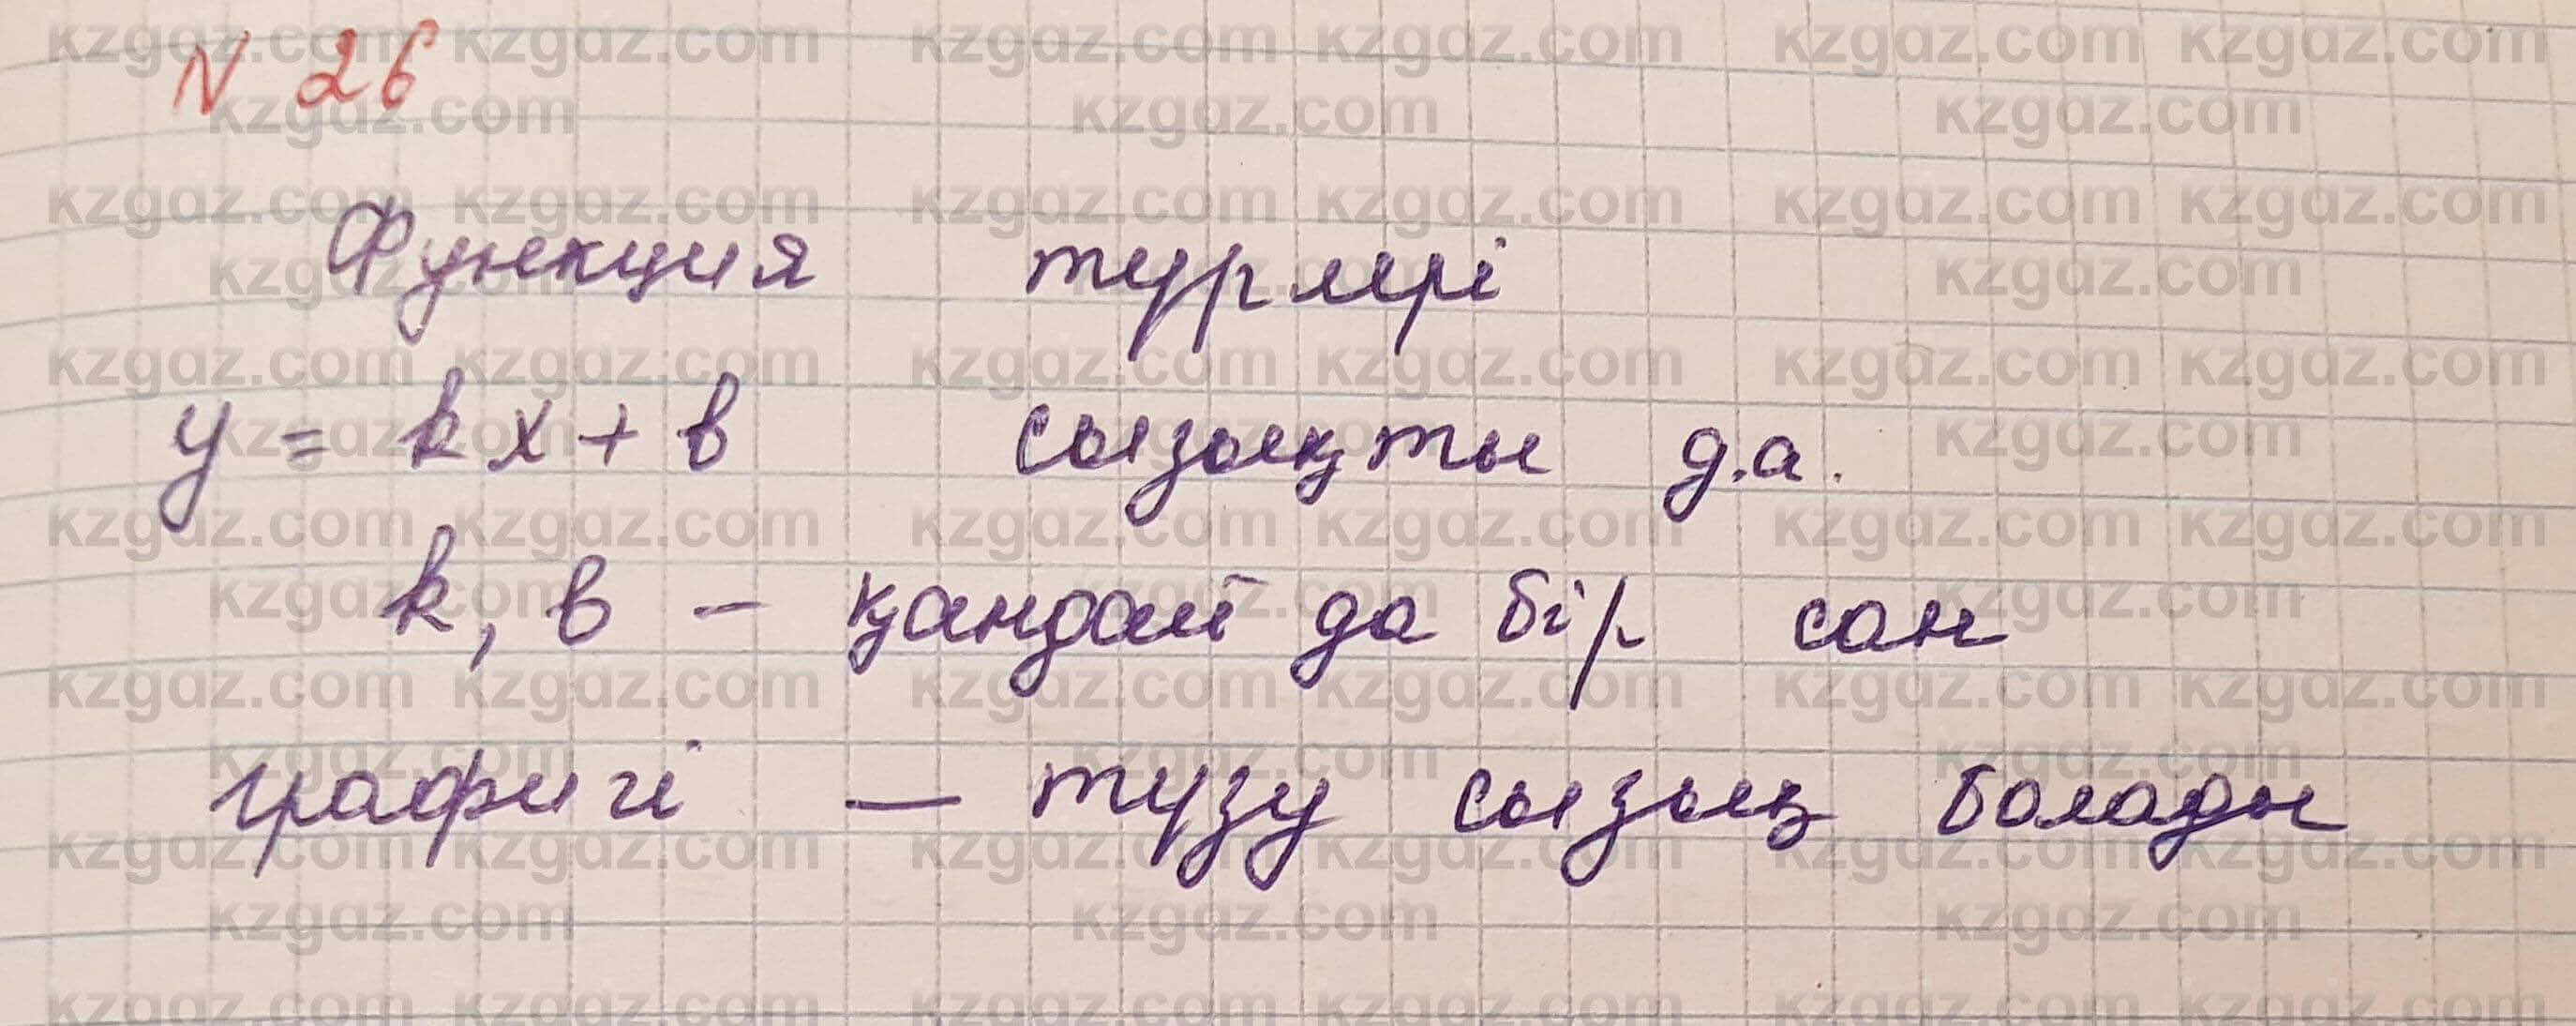 N 26
Функция түрлері
y = kx + b сызықты д.а.
k, b - қандай да бір сан
графигі — түзу сызық болады